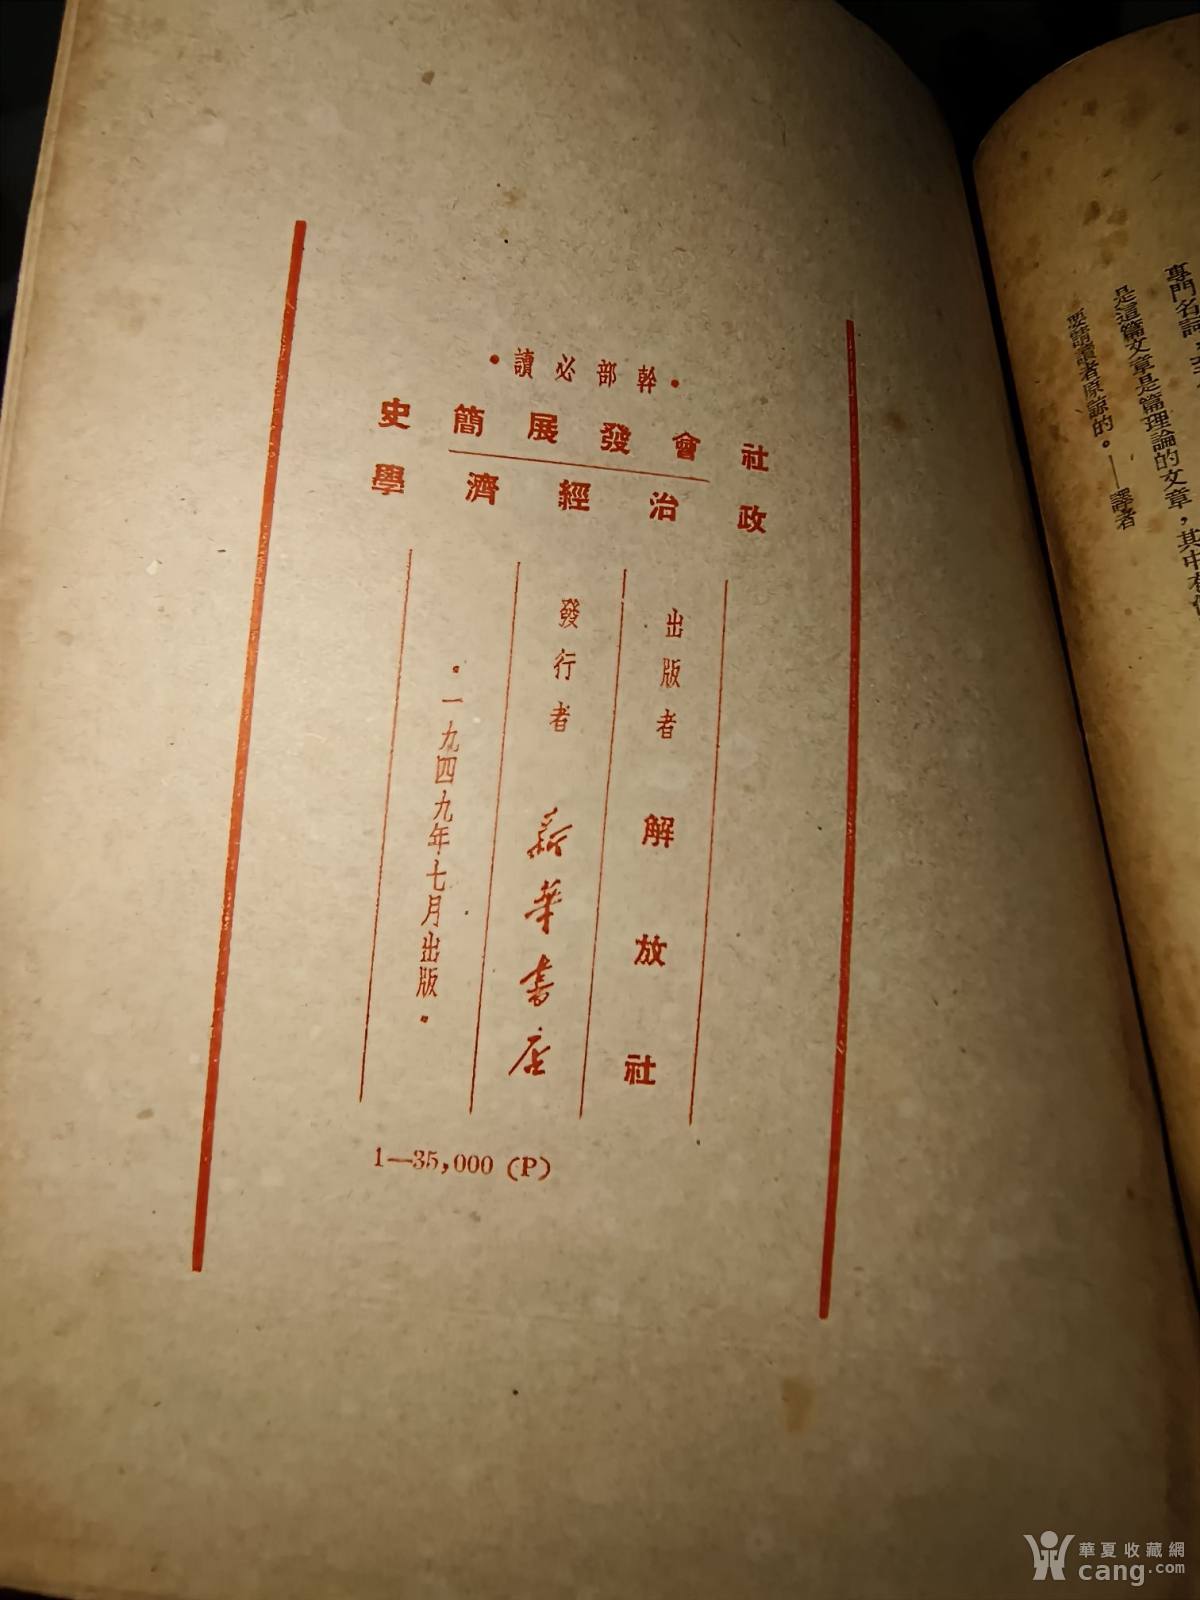 •幹部必讀•
社會發展簡史
政治經濟學
出版者 解放社
發行者 新華書店
•一九四九年七月出版•
1—35,000 (P)
專門名詞，
是這篇文章是篇理論的文章，其中有
要請讀者原諒的。——譯者
華夏收藏網
cang.com